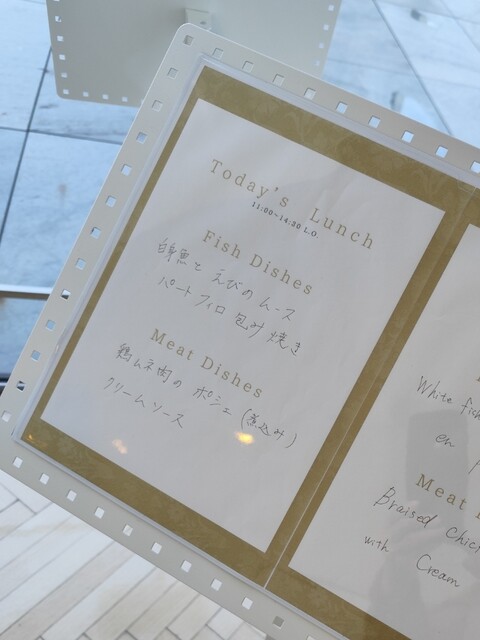 Today's Lunch
11:00~14:30 L.O.
Fish Dishes
白身魚と えびの ムース
パートフィロ 包み 焼き
Meat Dishes
鶏ムネ肉の ポシェ (煮込み)
クリームソース
White fish
en
Meat
Braised chic
with Cream